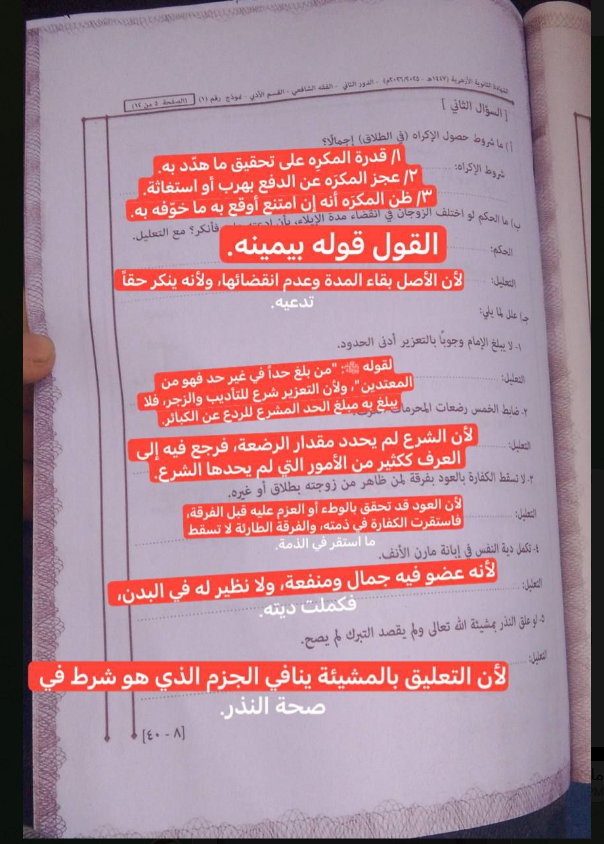 الشهادة الثانوية الأزهرية (١٤٤٧هـ - ٢٠٢٦/٢٠٢٥م) - الدور الثاني - الفقه الشافعي - القسم الأدبي - نموذج رقم (٩) (الصفحة ٥ من ١٤)
[ السؤال الثاني ]
أ) ما شروط حصول الإكراه (في الطلاق) إجمالًا؟
شروط الإكراه:
١/ قدرة المكرِه على تحقيق ما هدّد به.
٢/ عجز المكرَه عن الدفع بهرب أو استغاثة.
٣/ ظن المكرَه أنه إن امتنع أوقع به ما خوّفه به.
ب) ما الحكم لو اختلف الزوجان في انقضاء مدة الإيلاء، بأن ادعته فأنكر؟ مع التعليل.
الحكم:
القول قوله بيمينه.
التعليل:
لأن الأصل بقاء المدة وعدم انقضائها، ولأنه ينكر حقاً
تدعيه.
جـ) علل لما يلي:
١- لا يبلغ الإمام وجوبًا بالتعزير أدنى الحدود.
التعليل:
لقوله ﷺ: "من بلغ حداً في غير حد فهو من
المعتدين"، ولأن التعزير شرع للتأديب والزجر، فلا
يبلغ به مبلغ الحد المشرع للردع عن الكبائر.
٢- ضابط الخمس رضعات المحرمات
التعليل:
لأن الشرع لم يحدد مقدار الرضعة، فرجع فيه إلى
العرف ككثير من الأمور التي لم يحدها الشرع.
٣- لا تسقط الكفارة بالعود بفرقة لمن ظاهر من زوجته بطلاق أو غيره.
التعليل:
لأن العود قد تحقق بالوطء أو العزم عليه قبل الفرقة،
فاستقرت الكفارة في ذمته، والفرقة الطارئة لا تسقط
ما استقر في الذمة.
٤- تكمل دية النفس في إبانة مارن الأنف.
التعليل:
لأنه عضو فيه جمال ومنفعة، ولا نظير له في البدن،
فكملت ديته.
٥- لو علق النذر بمشيئة الله تعالى ولم يقصد التبرك لم يصح.
التعليل:
لأن التعليق بالمشيئة ينافي الجزم الذي هو شرط في
صحة النذر.
[٨ - ٤٠]